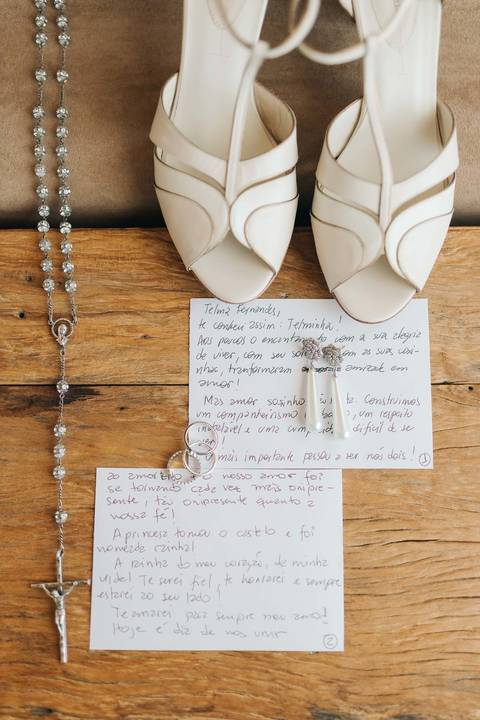 Telma Fernandes,
te conheci assim: Telminha!
Aos poucos o encantamento com a sua alegria
de viver, com seu com as suas
transformaram amizade em
amor!
Mas amor sozinho não basta. Construímos
um companheirismo um respeito
e uma difícil de se
mais importante passou a ser nós dois!
1
ao nosso amor foi
se tornando cada vez mais onipre-
sente, tão onipresente quanto a
nossa fé!
A princesa tomou o castelo e foi
nomeada rainha!
A rainha do meu coração, da minha
vida! Te serei fiel, te honrarei e sempre
estarei ao seu lado!
Te amarei para sempre meu amor!
Hoje é dia de nos unir
2